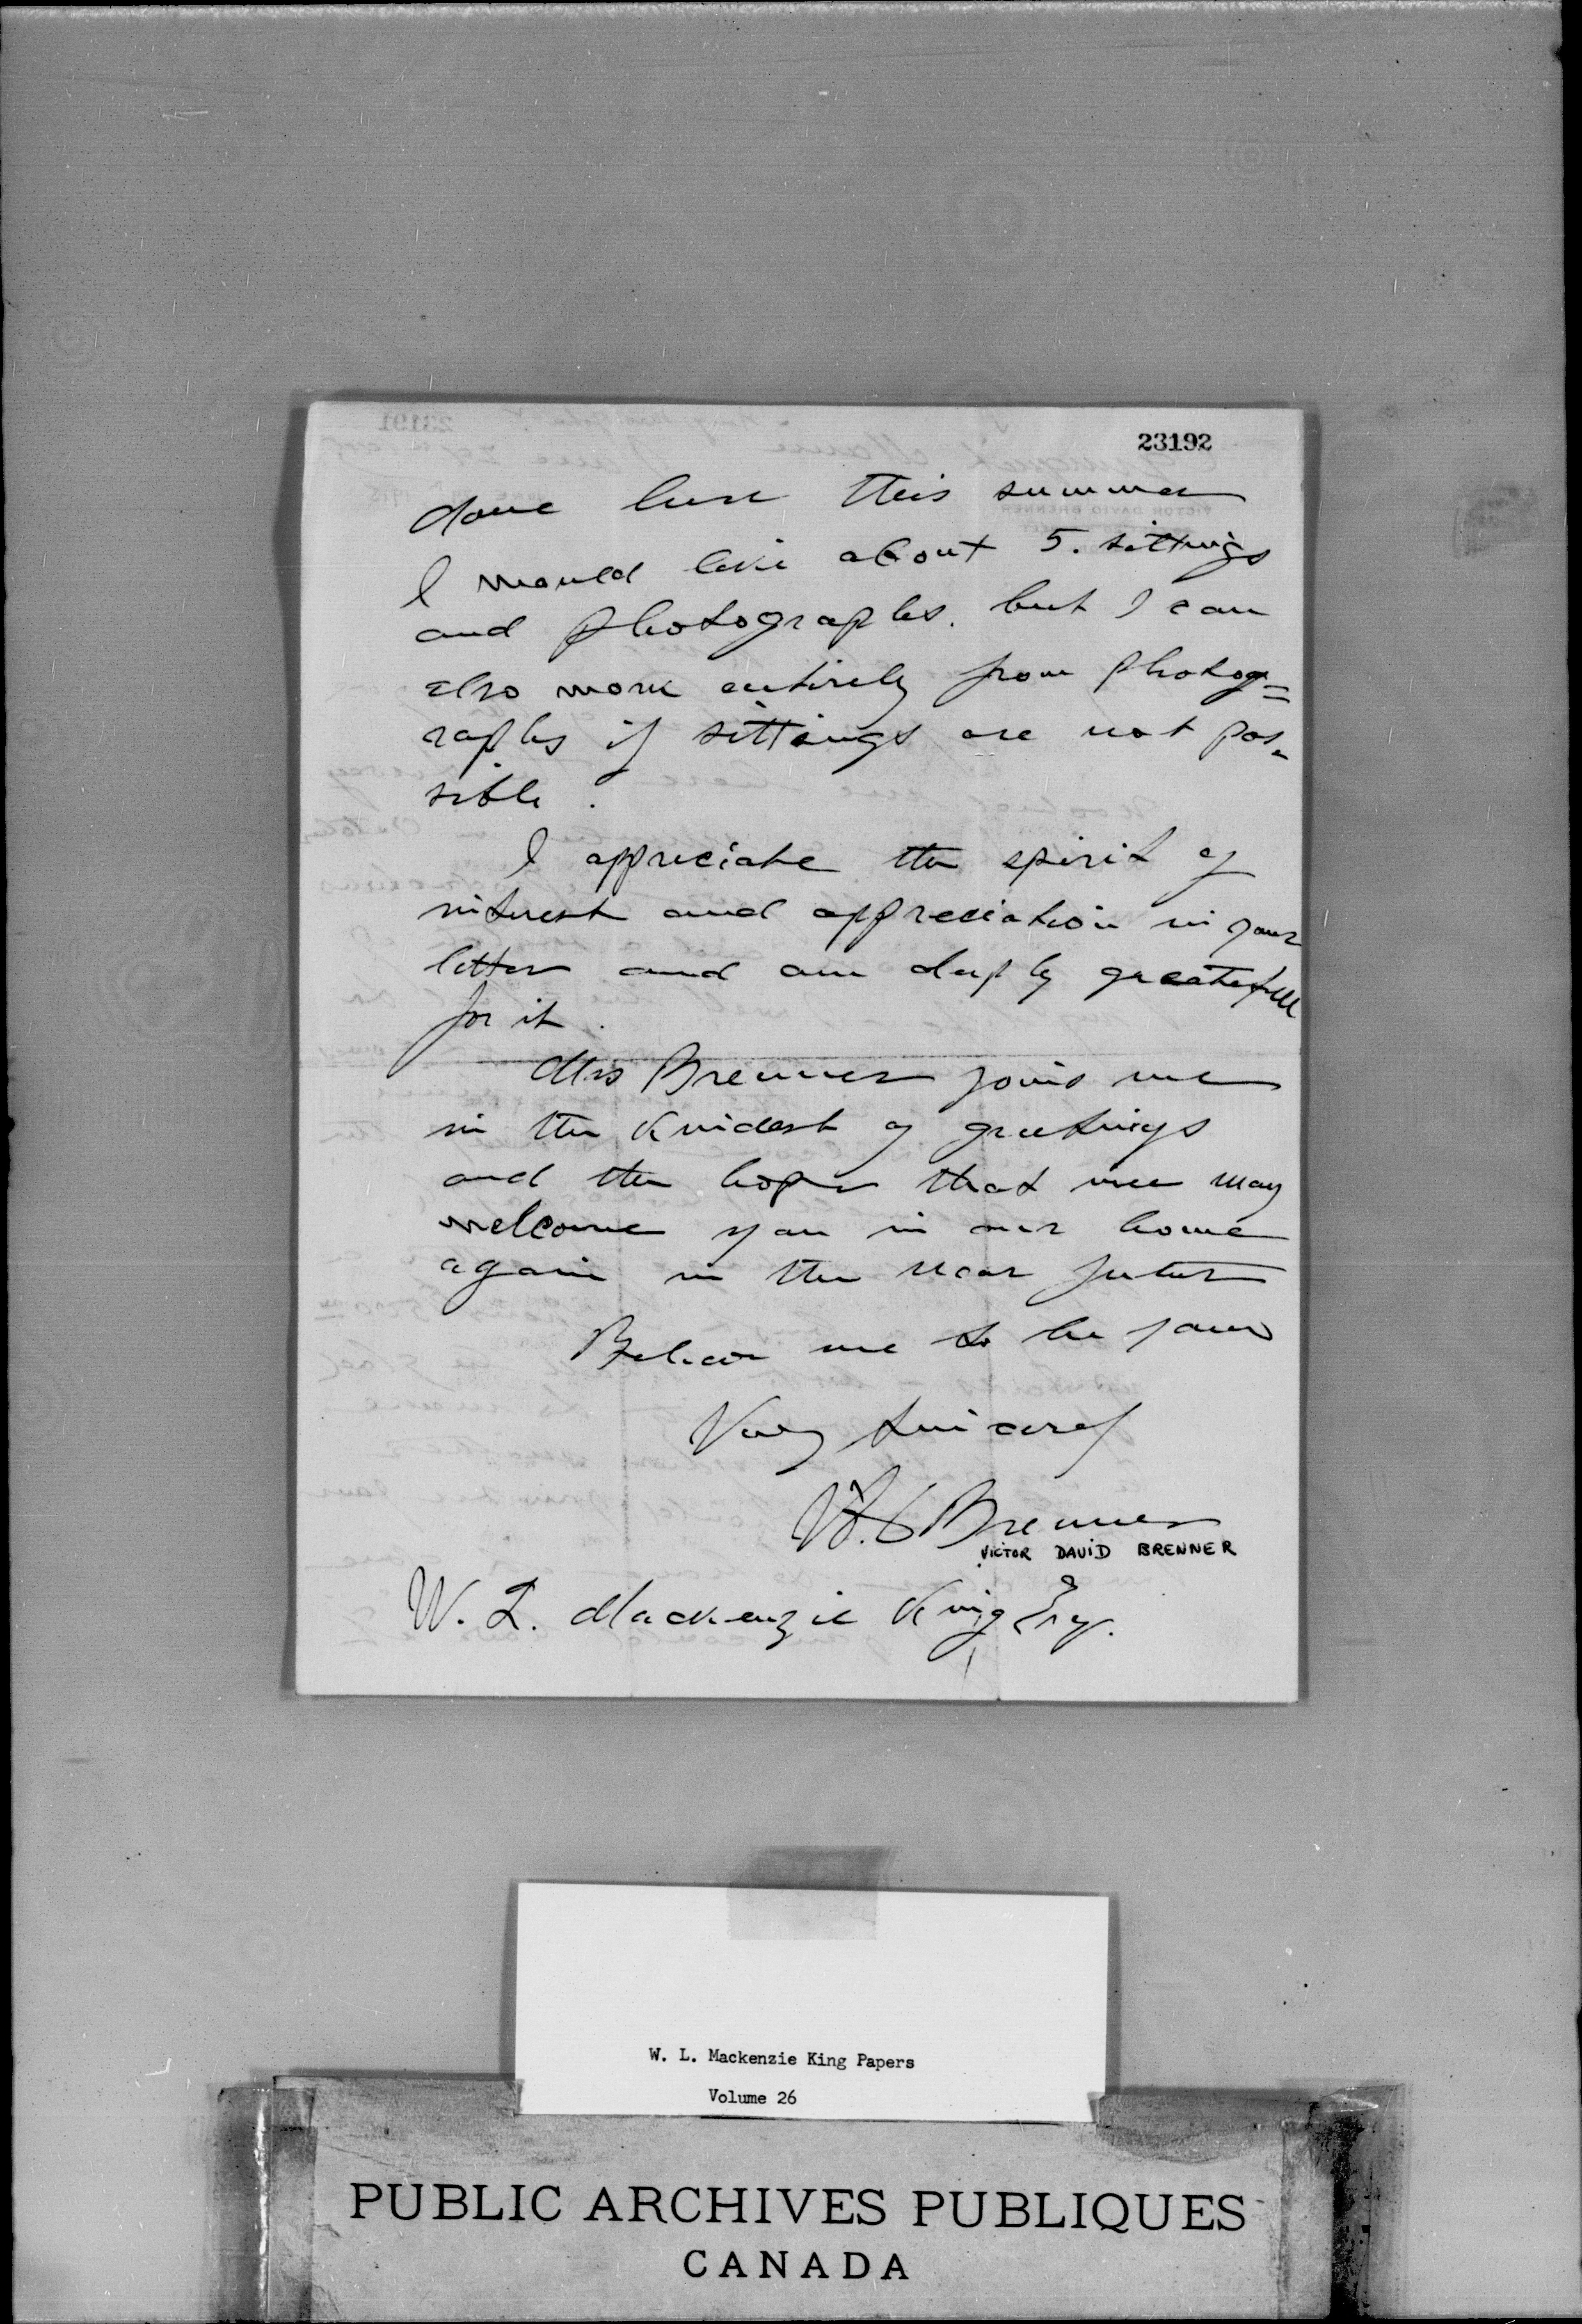 23192
done here this summer
I would like about 5. sittings
and photographs. but I can
also work entirely from photog=
raphs if sittings are not pos-
sible.
I appreciate the spirit of
interest and appreciation in your
letter and am deeply greatefull
for it.
Mrs Brenner joins me
in the kindest of greetings
and the hope that we may
welcome you in our home
again in the near future
Believe me to be yours
Very sincerely
V. D. Brenner
VICTOR DAVID BRENNER
W. L. Mackenzie King Esq.
W. L. Mackenzie King Papers
Volume 26
PUBLIC ARCHIVES PUBLIQUES
CANADA